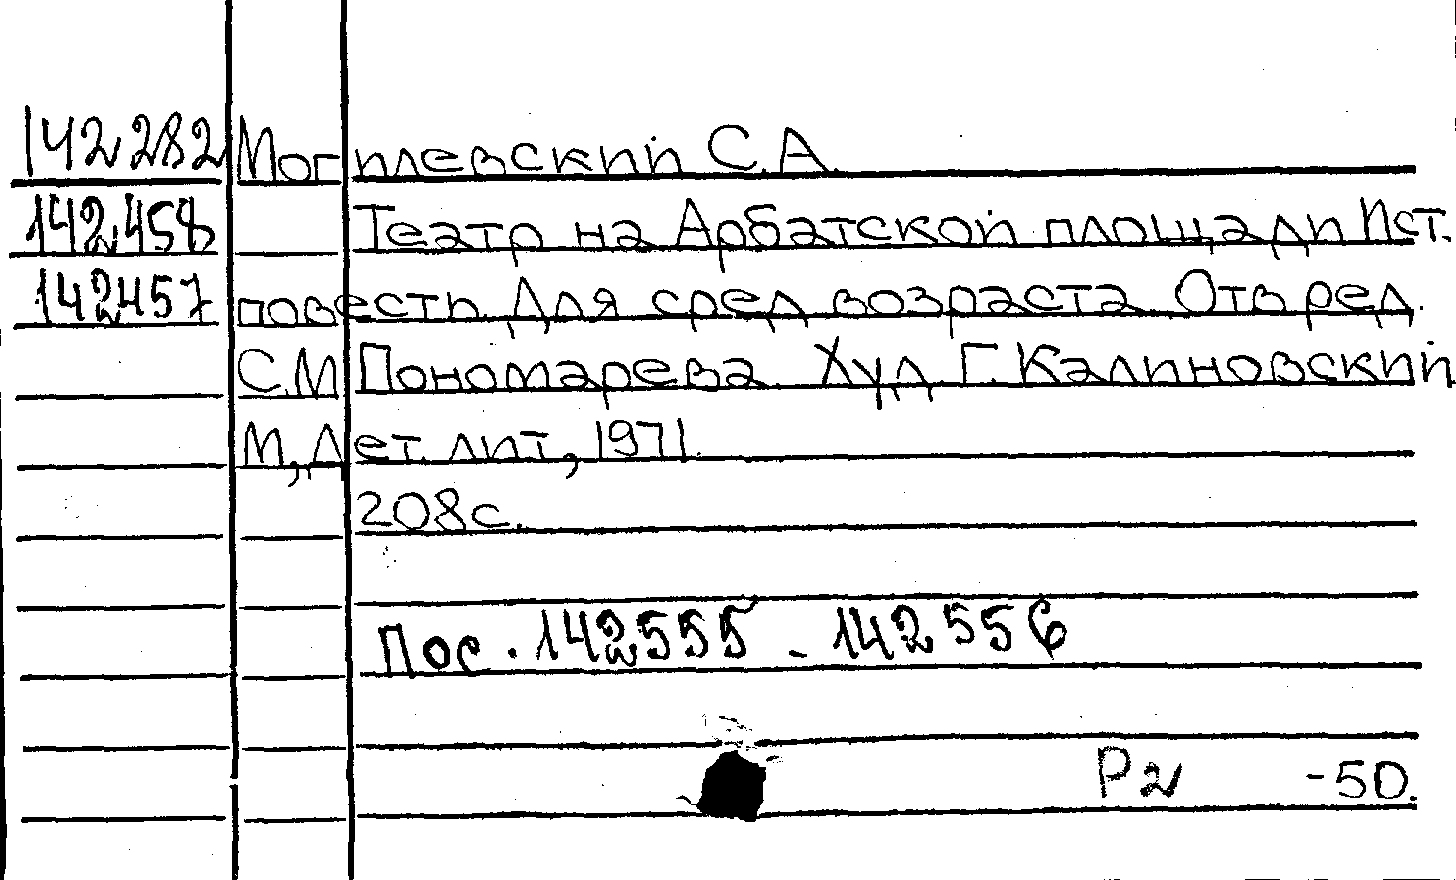 142282 Могилевский С.А.
142458 Театр на Арбатской площади Ист.
142457 повесть. Для сред возраста Отв ред.
С.М Пономарева. Худ Г. Калиновский
М, Дет. лит, 1971.
208с.
Пос. 142555 - 142556
Р2 -50.